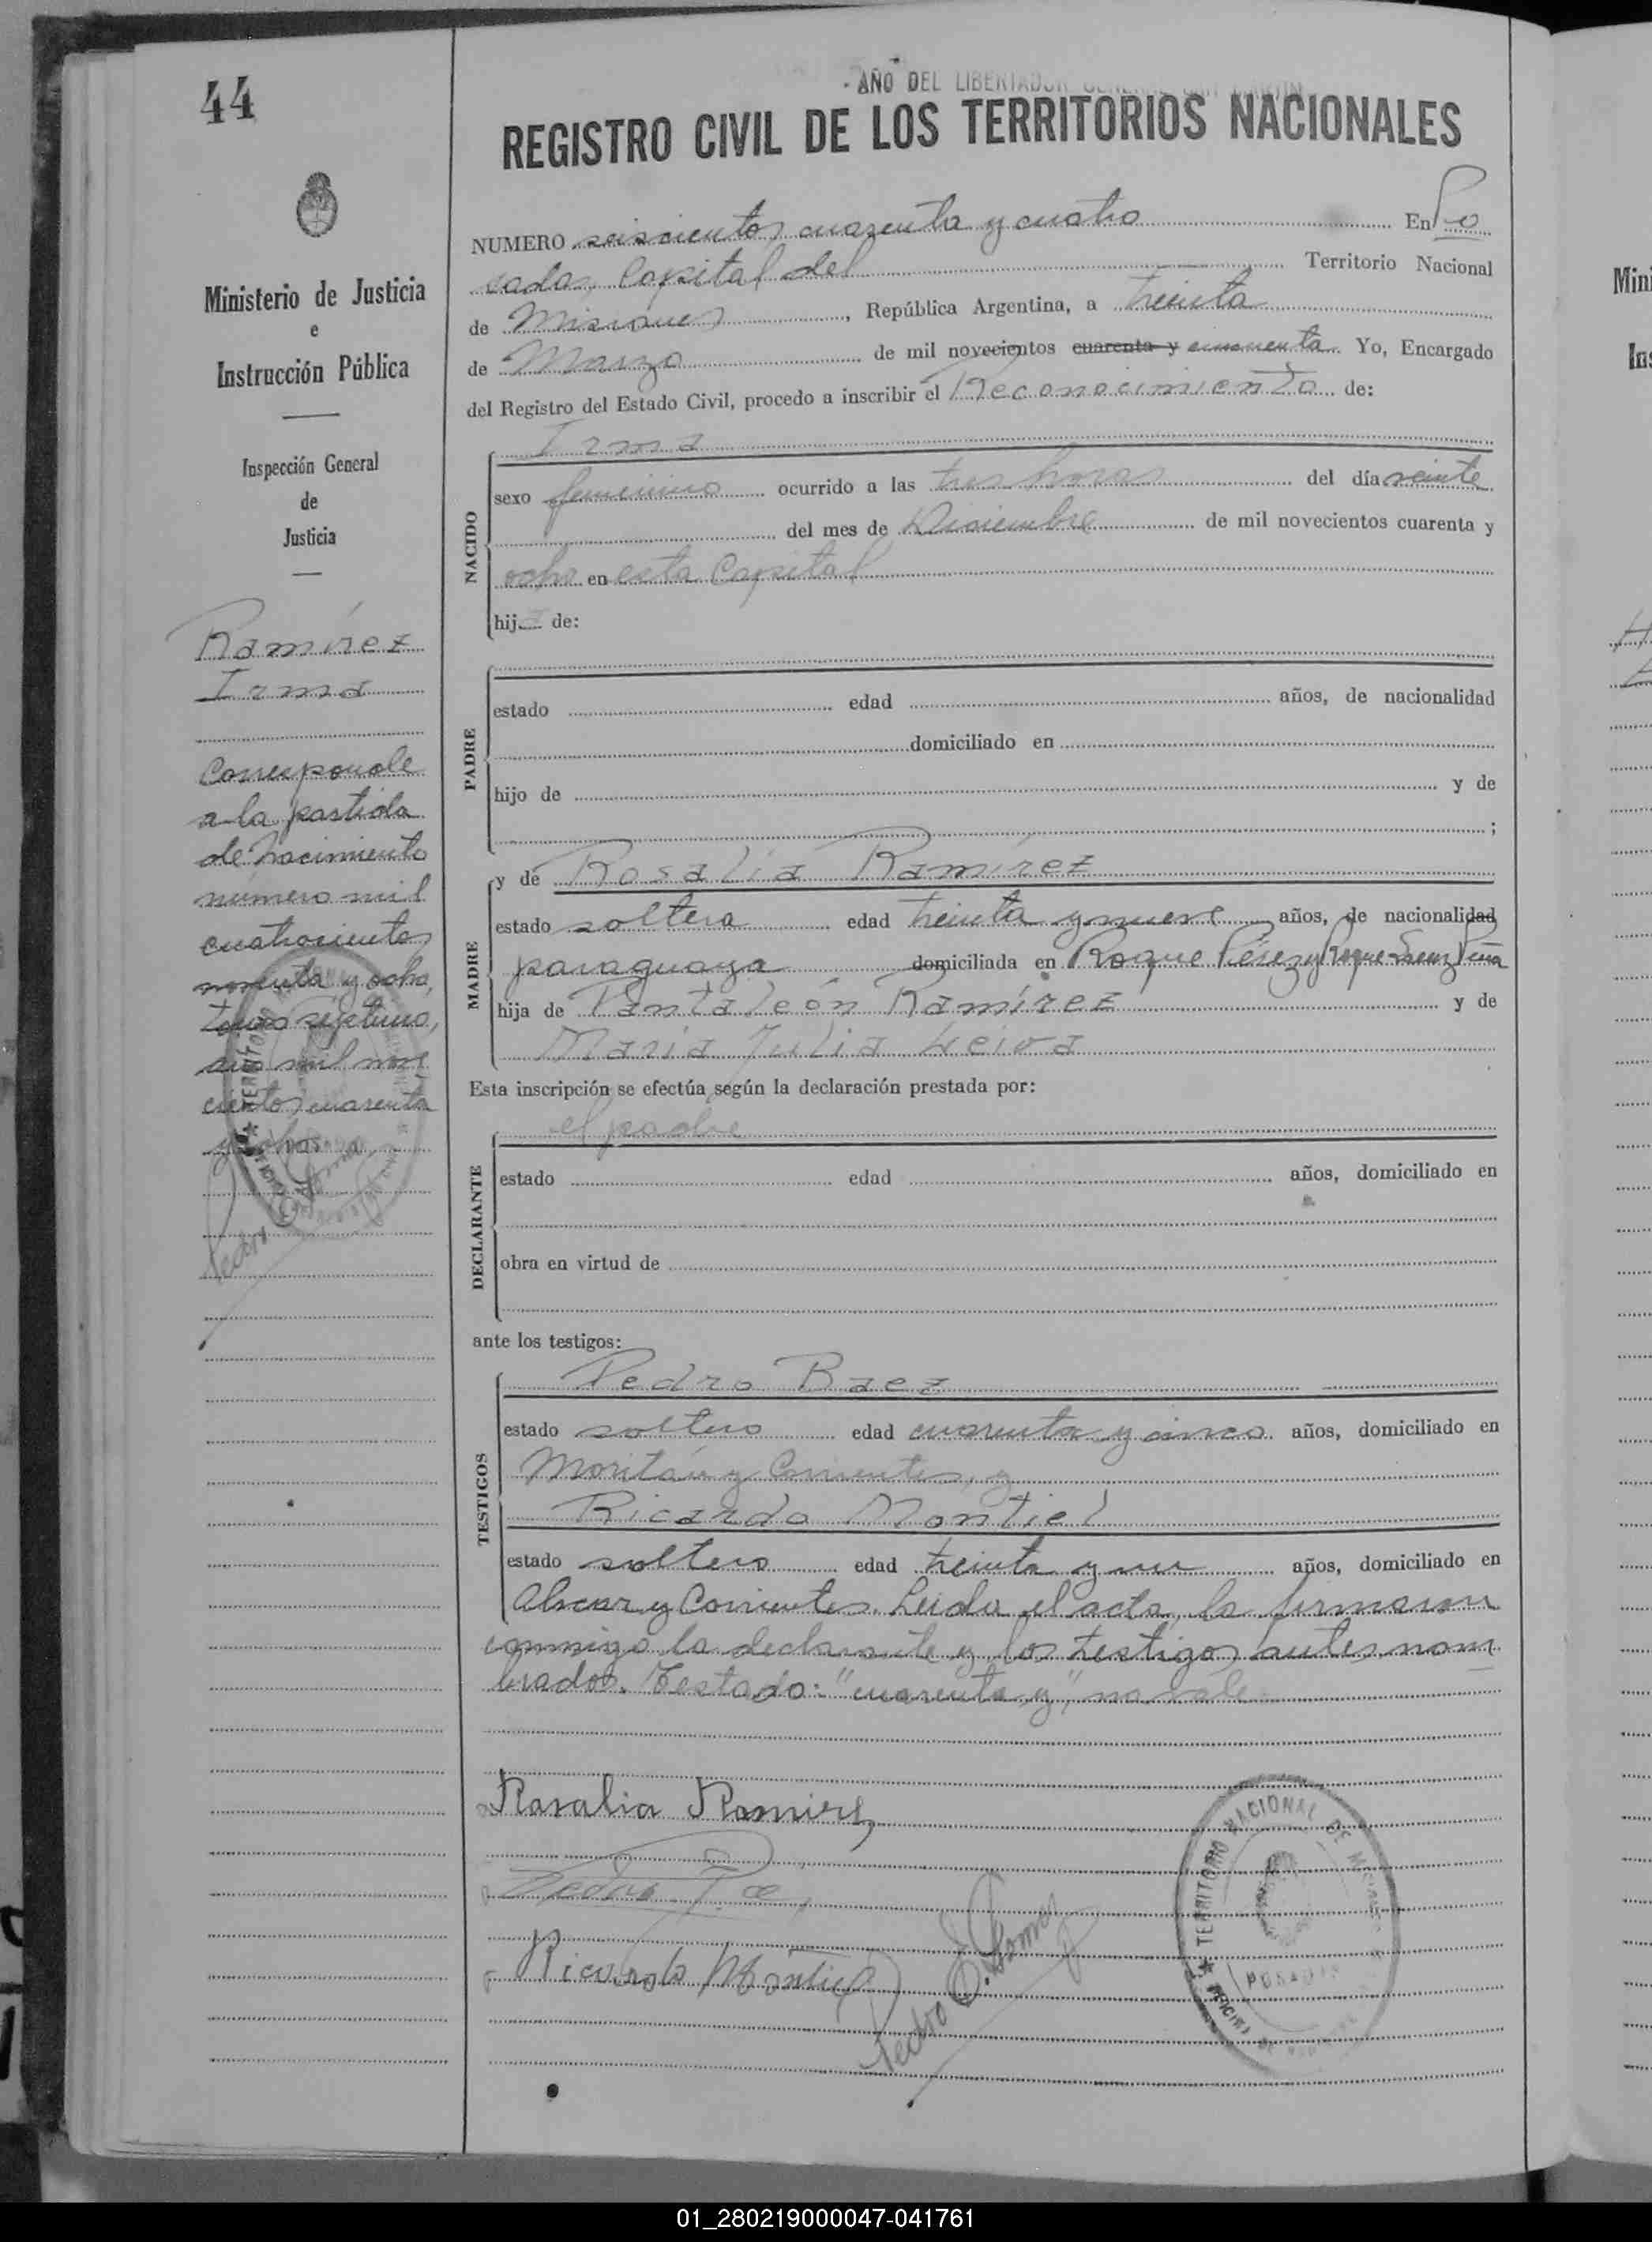 44
AÑO DEL LIBERTADOR GENERAL SAN MARTIN
REGISTRO CIVIL DE LOS TERRITORIOS NACIONALES
Ministerio de Justicia
e
Instrucción Pública
Inspección General
de
Justicia
Ramírez
Irma
Corresponde
a la partida
de nacimiento
número mil
cuatrocientos
noventa y ocho,
tomo séptimo,
año mil nove
cientos cuarenta
y ocho
NUMERO seiscientos cuarenta y cuatro En Po
sadas, Capital del Territorio Nacional
de Misiones, República Argentina, a treinta
de Marzo de mil novecientos cuarenta y cincuenta. Yo, Encargado
del Registro del Estado Civil, procedo a inscribir el Reconocimiento de:
NACIDO
Irma
sexo femenino ocurrido a las tres horas del día veinte
del mes de Diciembre de mil novecientos cuarenta y
ocho en esta Capital
hija de:
PADRE
estado edad años, de nacionalidad
domiciliado en
hijo de y de
;
MADRE
y de Rosalía Ramírez
estado soltera edad treinta y nueve años, de nacionalidad
paraguaya domiciliada en Roque Pérez y Roque Saenz Peña
hija de Pantaleón Ramírez y de
María Julia Leiva
Esta inscripción se efectúa según la declaración prestada por:
DECLARANTE
el padre
estado edad años, domiciliado en
obra en virtud de
ante los testigos:
TESTIGOS
Pedro Baez
estado soltero edad cuarenta y cinco años, domiciliado en
y Corrientes, y
Ricardo Montiel
estado soltero edad treinta y un años, domiciliado en
Alvear y Corrientes. Leida el acta, la firmaron
conmigo la declarante y los testigos antes nom
brados. Testado: "cuarenta y", no vale
Rosalia Ramirez
Pedro
Ricardo Montiel
Pedro
TERRITORIO NACIONAL DE MISIONES
POSADAS
Mini
Ins
01_280219000047-041761